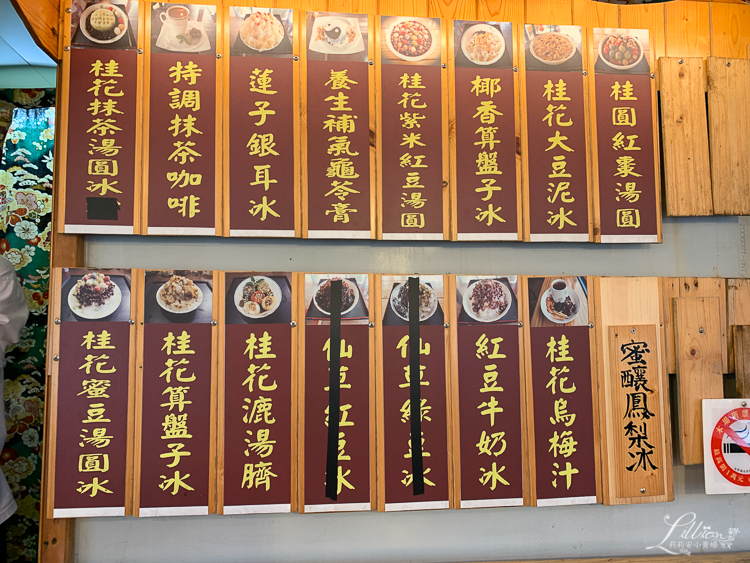 桂花抹茶湯圓冰
特調抹茶咖啡
蓮子銀耳冰
養生補氣龜苓膏
桂花紫米紅豆湯圓
椰香算盤子冰
桂花大豆泥冰
桂圓紅棗湯圓
桂花蜜豆湯圓冰
桂花算盤子冰
桂花漉湯臍
仙豆紅豆冰
仙豆綠豆冰
紅豆牛奶冰
桂花烏梅汁
蜜釀鳳梨冰
Lillian
莉莉安小貴婦